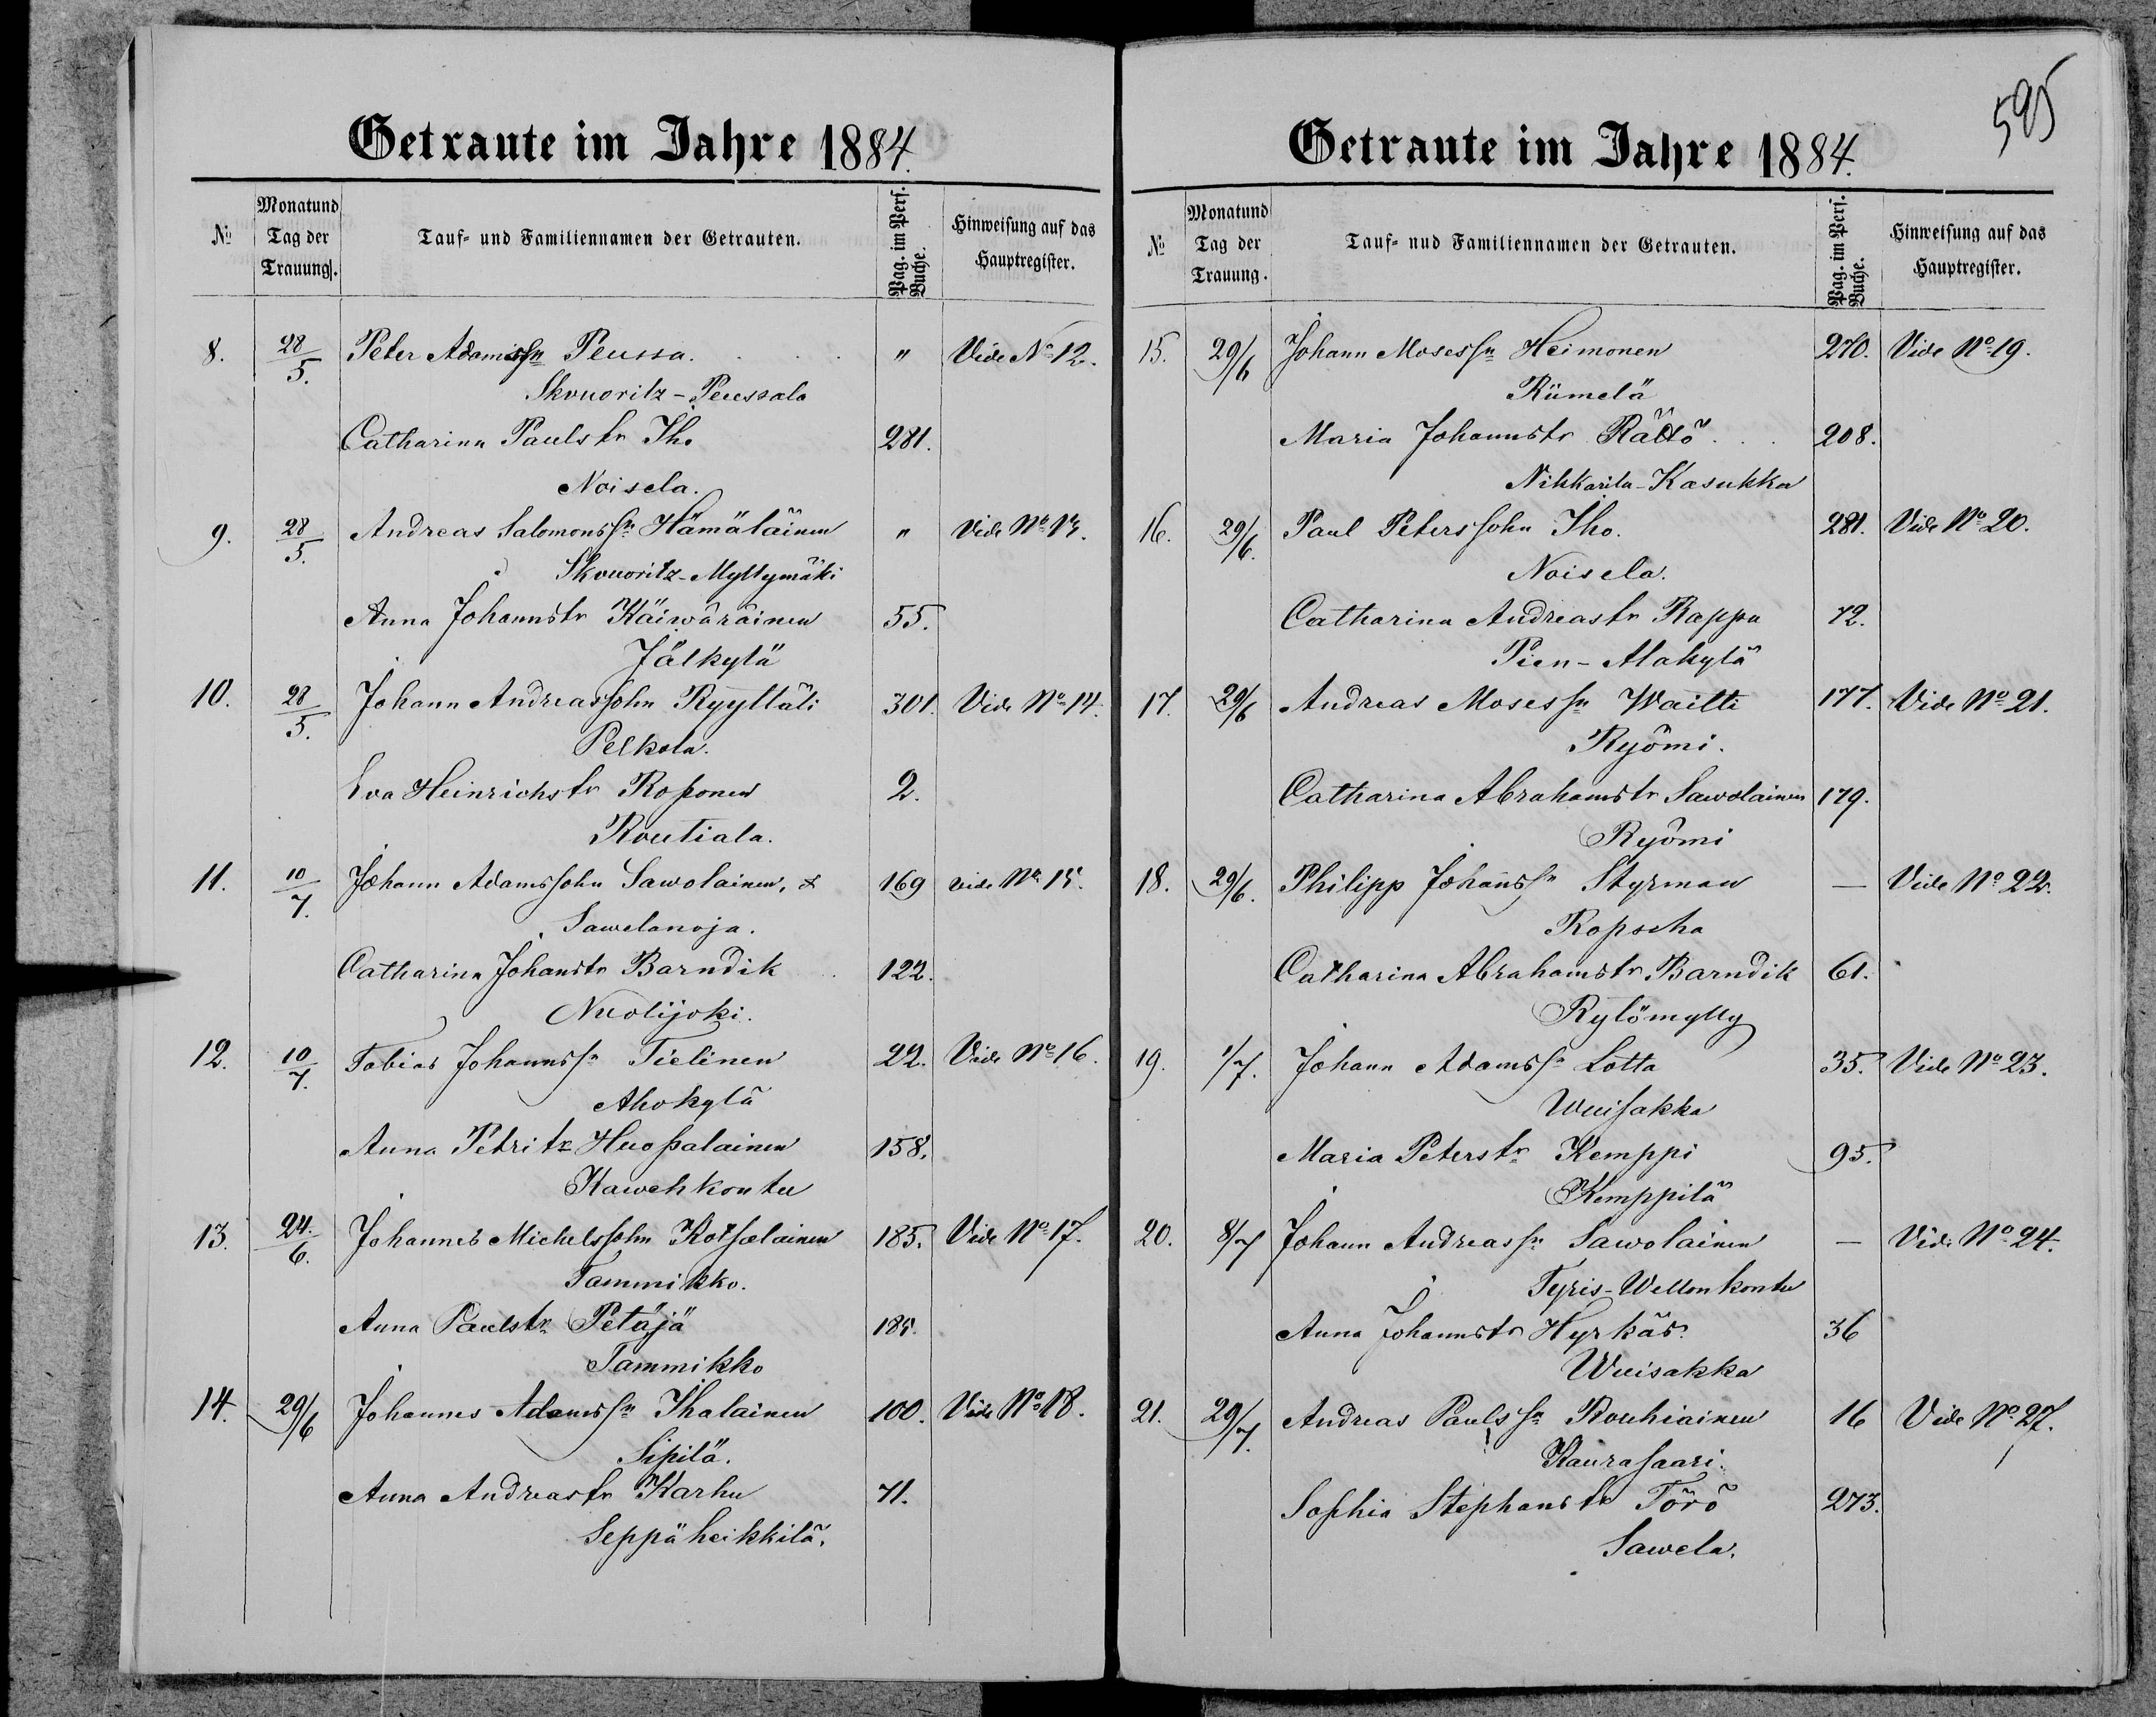 Getraute im Jahre 1884.
№ Monat und Tag der Trauung. Tauf- und Familiennamen der Getrauten. Pag. im Pers. Buche. Hinweisung auf das Hauptregister.
8. 28/5. Peter Adamssn Peussa. " Vide No 12.
Skvuoritz-Peussala
Catharina Paulstr Iho 281.
Noisela.
9. 28/5. Andreas Salomonssn Hämäläinen " Vide No 13.
Skvuoritz-Myllymäki
Anna Johannstr Käiwäräinen 55.
Jälkylä
10. 28/5. Johann Andreassohn Ryyltäli 301. Vide No 14.
Pelkola.
Eva Heinrichstr Roponen 2.
Routiala.
11. 10/7. Johann Adamssohn Sawolainen, & 169 vide No 15.
Sawelanoja.
Catharina Johanstr Barndik 122.
Nuolijoki.
12. 10/7. Tobias Johannssn Tielinen 22. Vide No 16.
Ahokylä
Anna Petritr Huopalainen 158.
Kawehkontu
13. 24./6. Johannes Michelssohn Kotsalainen 185. Vide No 17.
Tammikko.
Anna Paulstr Petäjä 185.
Tammikko
14. 29/6 Johannes Adamssn Ihalainen 100. Vide No 18.
Sipilä.
Anna Andreastr Karhu 71.
Seppäheikkilä.
595
Getraute im Jahre 1884.
№ Monat und Tag der Trauung. Tauf- nud Familiennamen der Getrauten. Pag. im Pers. Buche. Hinweisung auf das Hauptregister.
15. 29/6 Johann Mosessn Heimonen 270. Vide No 19.
Riimelä
Maria Johannstr Rättö 208.
Nihkarila-Kasukka
16. 29/6. Paul Peterssohn Iho. 281. Vide No 20.
Noisela.
Catharina Andreastr Rappu 72.
Pien-Alakylä
17. 29/6 Andreas Mosessn Waitti 177. Vide No 21.
Ryömi.
Catharina Abrahamstr Sawolainen 179.
Ryömi
18. 29/6. Philipp Johanssn Styrman — Vide No 22.
Ropscha
Catharina Abrahamstr Barndik 61.
Rylömylly
19. 1/7. Johann Adamssn Lotta 35. Vide No 23.
Wuisakka
Maria Peterstr Kemppi 95.
Kemppilä
20. 8/7 Johann Andreassn Sawolainen — Vide No 24.
Tyris-Wellonkontu
Anna Johannstr Hyrkäs. 36
Wuisakka
21. 29/7. Andreas Paulssn Rouhiainen 16 Vide No 27.
Kaurasaari.
Sophia Stephanstr Törö 273.
Sawela.